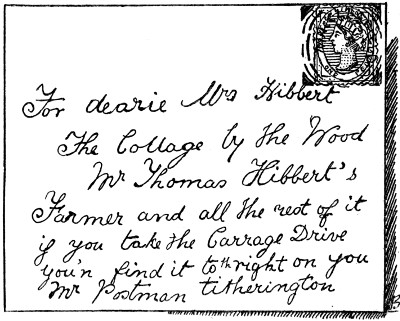 For dearie Mrs Hibbert
The Collage by the Wood
Mr Thomas Hibbert's
Farmer and all the rest of it
if you take the Carrage Drive
you'n find it to th right on you
Mr Postman titherington
B